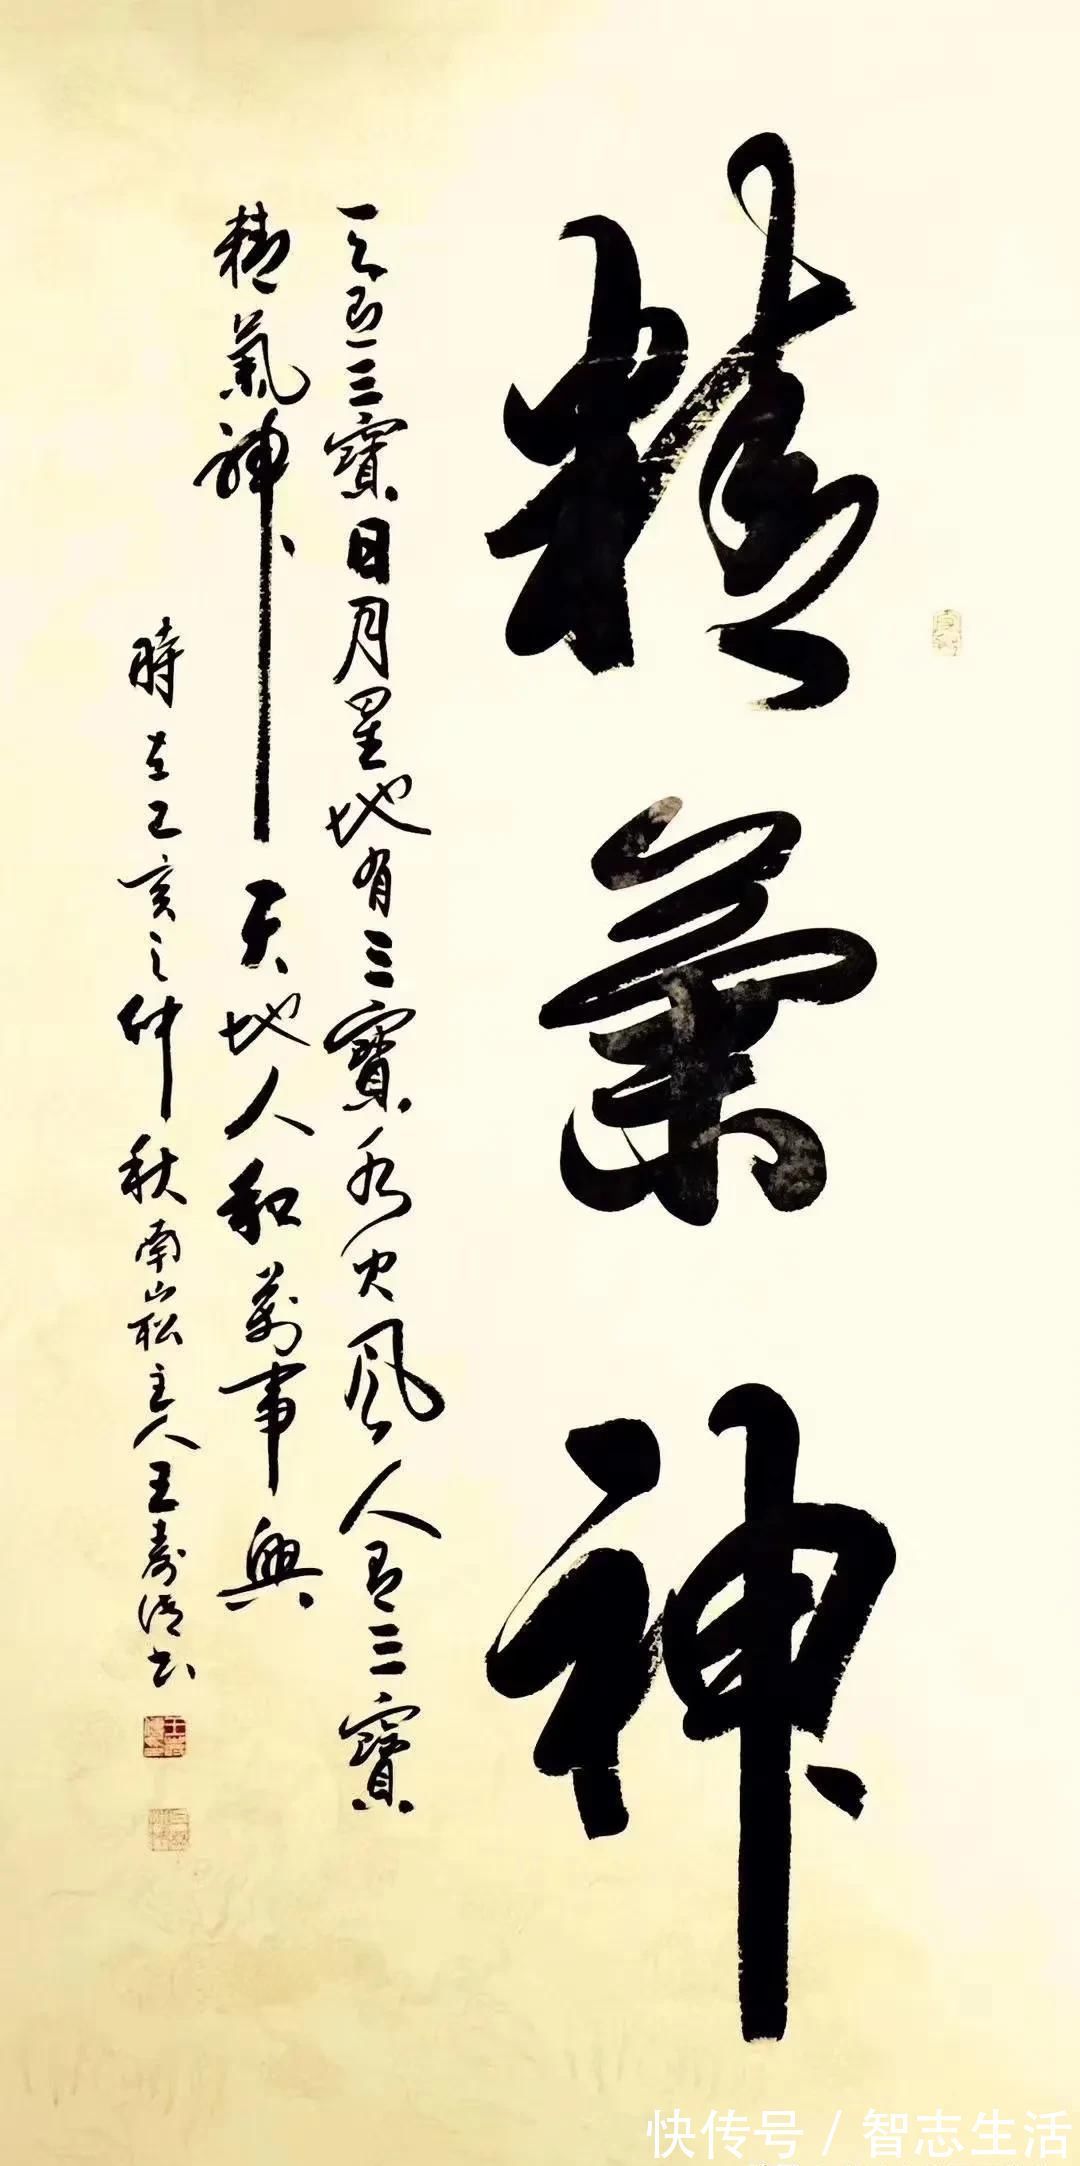 精氣神
天有三寶日月星地有三寶水火風人有三寶
精氣神天地人和萬事興
時在己亥之仲秋南山松主人王壽清書
快传号/智志生活